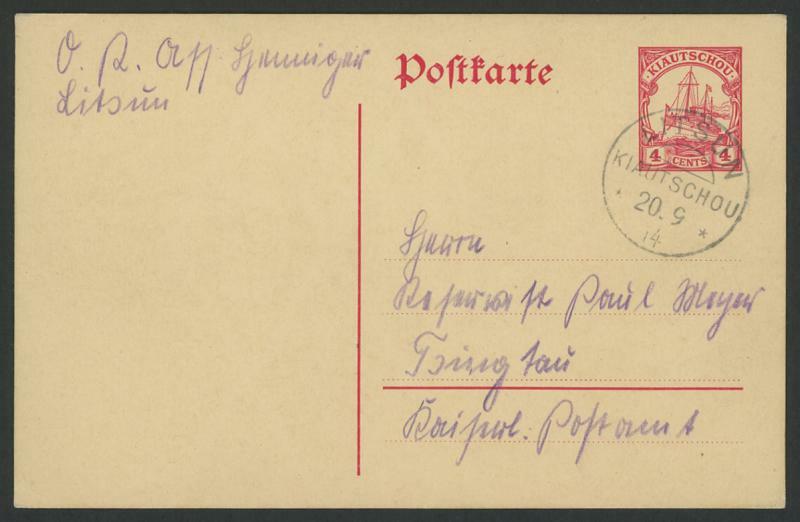 O. P. Ass Henniger
Litsun
Postkarte
KIAUTSCHOU
4 CENTS 4
LITSUN
KIAUTSCHOU
* 20. 9 *
14
Herrn
Reservist Paul Meyer
Tsingtau
Kaiserl. Postamt